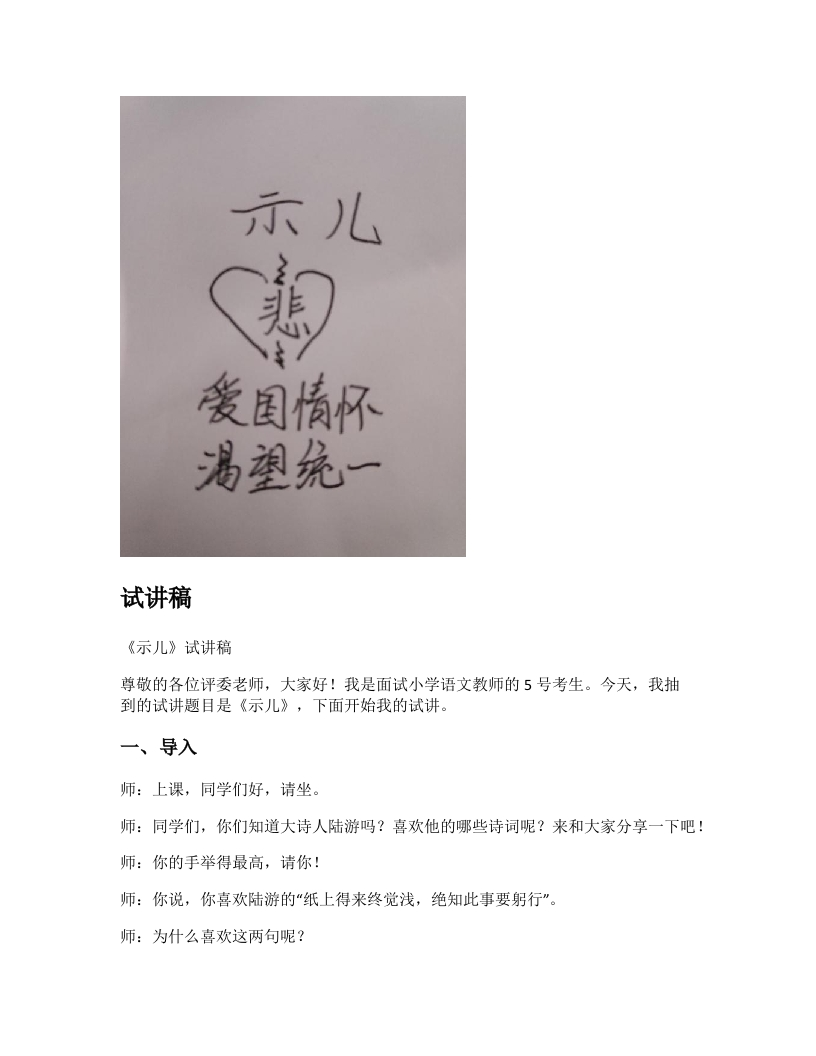 示儿
悲
爱国情怀
渴望统一
试讲稿
《示儿》试讲稿
尊敬的各位评委老师，大家好！我是面试小学语文教师的 5 号考生。今天，我抽
到的试讲题目是《示儿》，下面开始我的试讲。
一、导入
师：上课，同学们好，请坐。
师：同学们，你们知道大诗人陆游吗？喜欢他的哪些诗词呢？来和大家分享一下吧！
师：你的手举得最高，请你！
师：你说，你喜欢陆游的“纸上得来终觉浅，绝知此事要躬行”。
师：为什么喜欢这两句呢？